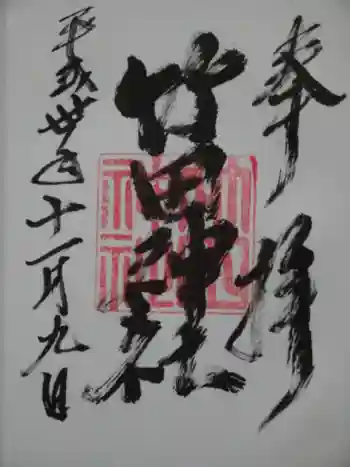 奉拝
竹田神社
平成卅年十一月九日